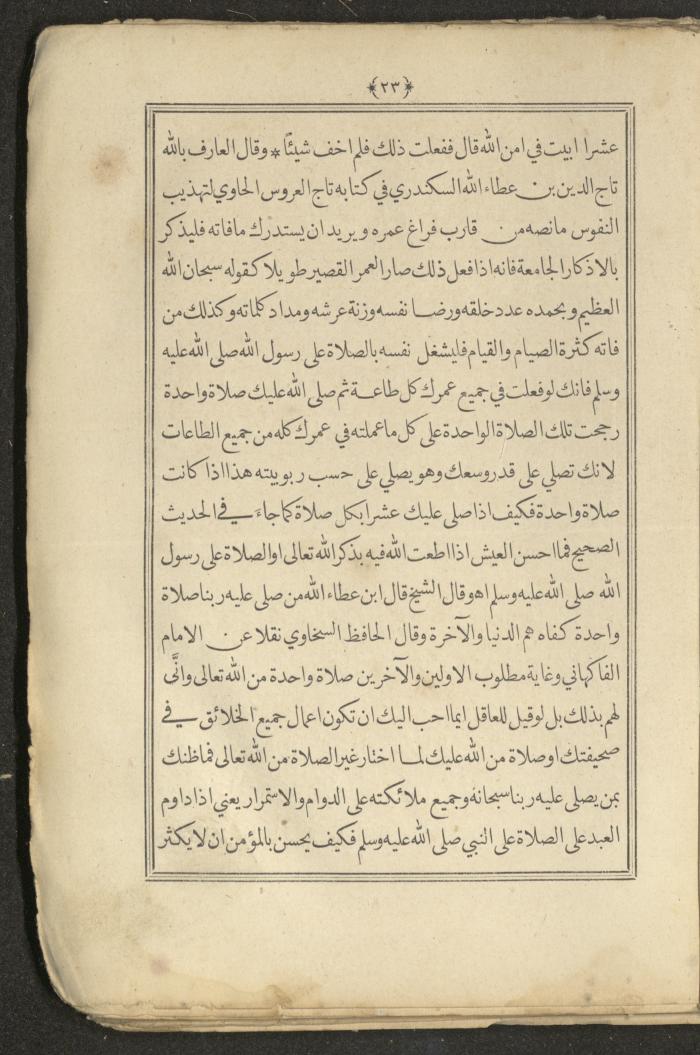 ﴿٢٣﴾
عشرا ابيت في امن الله قال ففعلت ذلك فلم اخف شيئًا * وقال العارف بالله
تاج الدين بن عطاء الله السكندري في كتابه تاج العروس الحاوي لتهذيب
النفوس مانصه من قارب فراغ عمره ويريد ان يستدرك مافاته فليذكر
بالاذكار الجامعة فانه اذا فعل ذلك صار العمر القصير طويلا كقوله سبحان الله
العظيم وبحمده عدد خلقه ورضا نفسه وزنة عرشه ومداد كلماته وكذلك من
فاته كثرة الصيام والقيام فليشغل نفسه بالصلاة على رسول الله صلى الله عليه
وسلم فانك لو فعلت في جميع عمرك كل طاعة ثم صلى الله عليك صلاة واحدة
رجحت تلك الصلاة الواحدة على كل ماعملته في عمرك كله من جميع الطاعات
لانك تصلي على قدر وسعك وهو يصلي على حسب ربوبيته هذا اذا كانت
صلاة واحدة فكيف اذا صلى عليك عشرا بكل صلاة كما جاءَ في الحديث
الصحيح فما احسن العيش اذا اطعت الله فيه بذكر الله تعالى او الصلاة على رسول
الله صلى الله عليه وسلم اه وقال الشيخ قال ابن عطاء الله من صلى عليه ربنا صلاة
واحدة كفاه هم الدنيا والآخرة وقال الحافظ السخاوي نقلا عن الامام
الفاكهاني وغاية مطلوب الاولين والآخرين صلاة واحدة من الله تعالى وانَّى
لهم بذلك بل لو قيل للعاقل ايما احب اليك ان تكون اعمال جميع الخلائق في
صحيفتك او صلاة من الله عليك لما اختار غير الصلاة من الله تعالى فماظنك
بمن يصلي عليه ربنا سبحانه وجميع ملائكته على الدوام والاستمرار يعني اذا داوم
العبد على الصلاة على النبي صلى الله عليه وسلم فكيف يحسن بالمؤمن ان لا يكثر